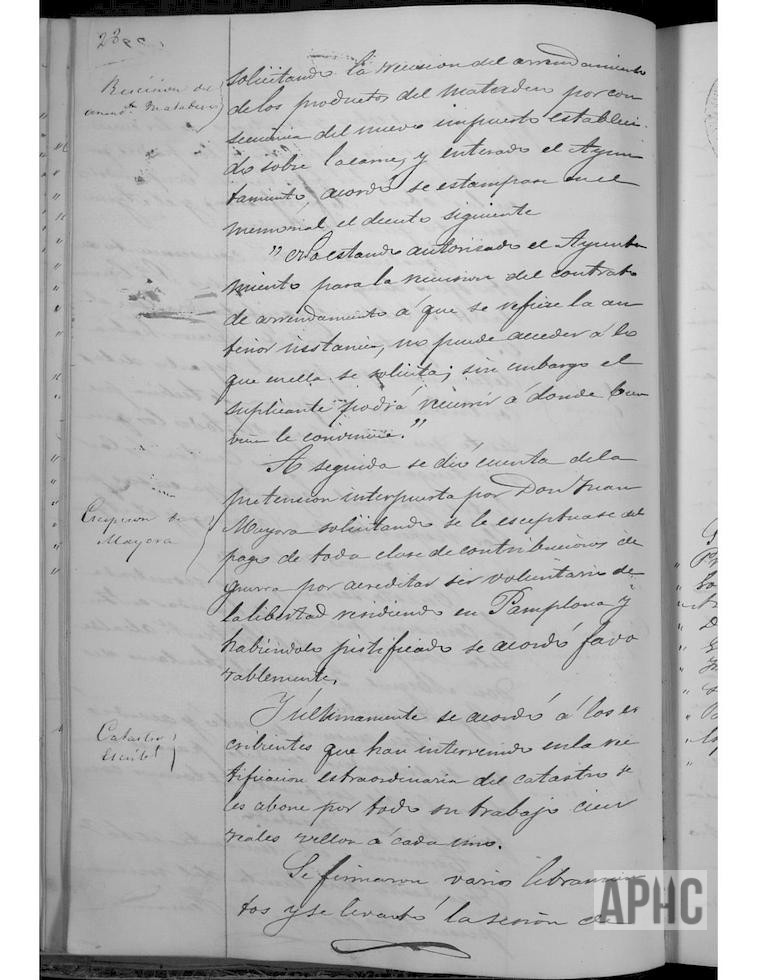 23
Rescision del
arrend.to Matadero
solicitando la recision del arrendamiento
de los productos del matadero por con
secuencia del nuevo impuesto estableci-
do sobre la carne, y enterado el Ayun
tamiento, acordó se estampase en el
memorial el decreto siguiente
"No estando autorisado el Ayunta
miento para la recision del contrato
de arrendamiento á que se refiere la an
terior instancia, no puede acceder á lo
que en ella se solicita; sin embargo el
suplicante podrá recurrir á donde
viere le conviniere."
A seguida se dió cuenta de la
pretencion interpuesta por Don Juan
Mayora solicitando se le esceptuase del
pago de toda clase de contribuciones de
guerra por acreditar ser voluntario de
la libertad residiendo en Pamplona y
habiéndolo justificado se acordó favo
rablemente.
Mayora
Y últimamente se acordó á los es
cribientes que han intervenido en la rec
tificacion estraordinaria del catastro se
les abone por todo su trabajo cien
reales vellon á cada uno.
Catastro
Escrib.s
Se firmaron varios libramien
tos y se levantó la sesion de
APHC